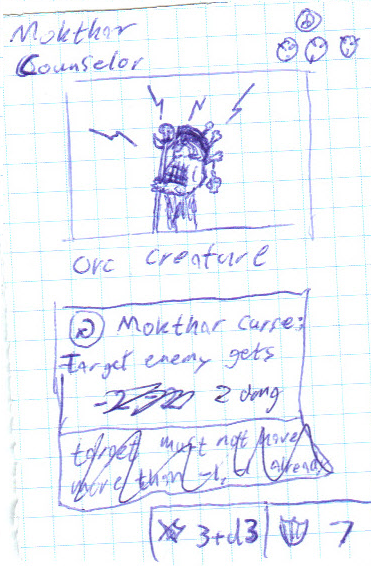 Mokthar
Counselor
Orc Creature
Mokthar Curse:
Target enemy gets
2 dmg
target must not have
more than -1, -1 already
3+d3 7